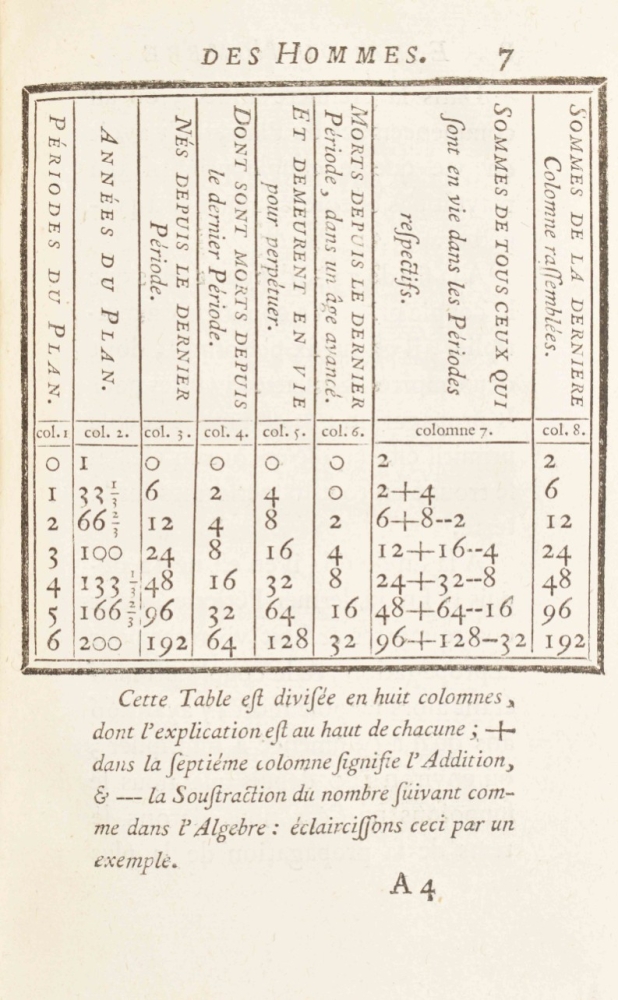 DES HOMMES. 7
PÉRIODES DU PLAN.
ANNÉES DU PLAN.
NÉS DEPUIS LE DERNIER
Période.
DONT SONT MORTS DEPUIS
le dernier Période.
ET DEMEURENT EN VIE
pour perpétuer.
MORTS DEPUIS LE DERNIER
Période, dans un âge avancé.
SOMMES DE TOUS CEUX QUI
ſont en vie dans les Périodes
reſpectifs.
SOMMES DE LA DERNIERE
Colomne raſſemblées.
col. 1 col. 2. col. 3. col. 4. col. 5. col. 6. colomne 7. col. 8.
0 1 0 0 0 0 2 2
1 33 1/3 6 2 4 0 2+4 6
2 66 2/3 12 4 8 2 6+8--2 12
3 100 24 8 16 4 12+16--4 24
4 133 1/3 48 16 32 8 24+32--8 48
5 166 2/3 96 32 64 16 48+64--16 96
6 200 192 64 128 32 96+128--32 192
Cette Table eſt diviſée en huit colomnes,
dont l'explication eſt au haut de chacune ; +
dans la ſeptiéme colomne ſignifie l'Addition,
& — la Souſtraction du nombre ſuivant com-
me dans l'Algebre : éclairciſſons ceci par un
exemple.
A 4